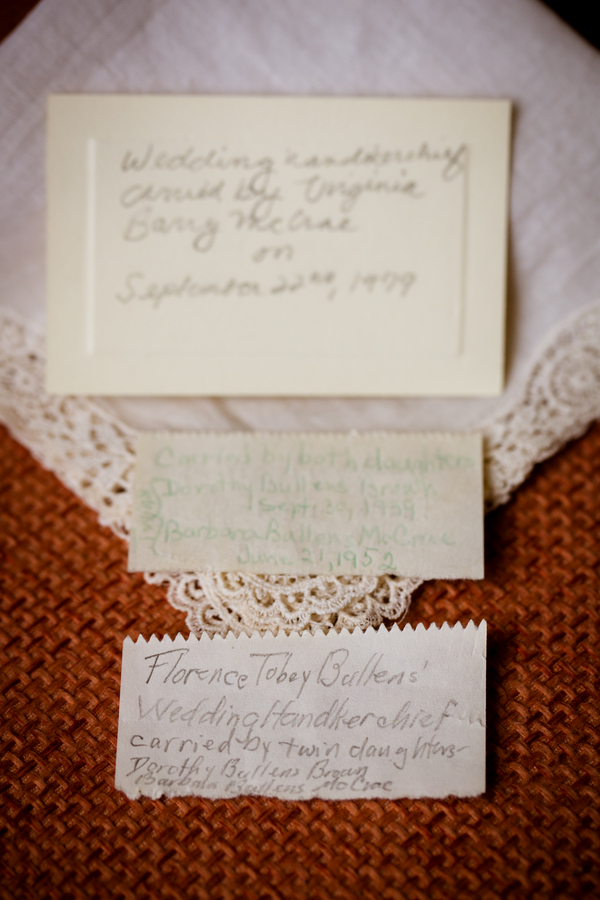 Wedding handkerchief
carried by Virginia
Barry McCrae
on
September 22nd, 1979
Carried by both daughters
Dorothy Bullens Brown
Sept. 20, 1958
Barbara Bullens McCrae
June 21, 1952
Florence Tobey Bullens'
Wedding Handkerchief
carried by twin daughters-
Dorothy Bullens Brown
Barbara Bullens McCrae